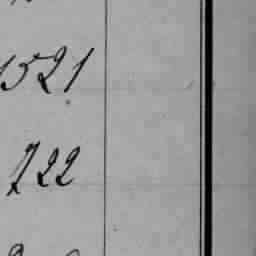 1521
722